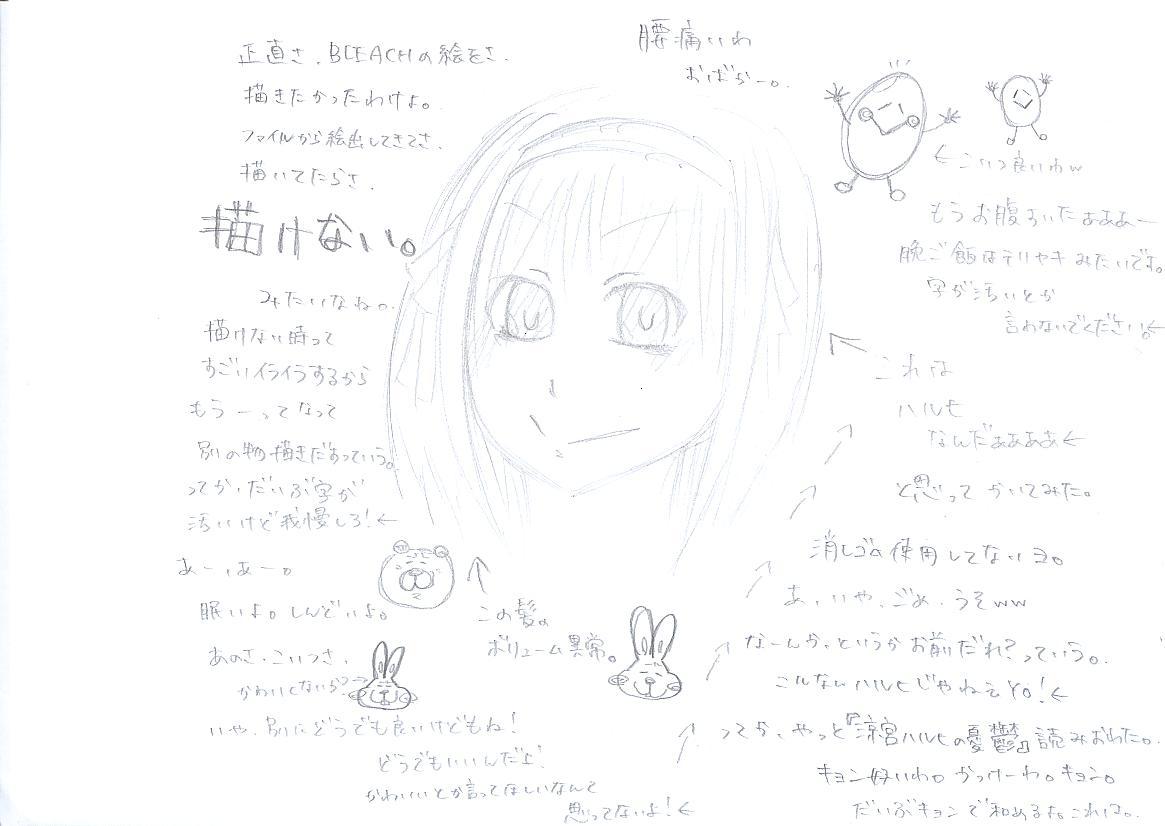 正直さ、BLEACHの絵をさ、
描きたかったわけよ。
ファイルから絵出してきてさ、
描いてたらさ、
描けない。
みたいなね。
描けない時って
すごいイライラするから
もうーってなって
別の物描きだすっていう。
ってか、だいぶ字が
汚いけど我慢しろ!←
あー、あー。
眠いよ。しんどいよ。
あのさ、こいつさ、
かわいくない?→
いや、別にどうでも良いけどもね!
どうでもいいんだよ!
かわいいとか言ってほしいなんて
思ってないよ!←
この髪の
ボリューム異常。
腰痛いわ
おばぁー。
←こいつ良いわw
もうお腹すいたぁぁあー
晩ご飯はテリヤキみたいです。
字が汚いとか
言わないでください。←
これは
ハルヒ
なんだぁぁぁぁ←
と思ってかいてみた。
消しゴム使用してないヨ。
あ、いや、ごめ、うそww
なーんか、というかお前だれ?っていう。
こんなんハルヒじゃねぇYO!←
ってか、やっと『涼宮ハルヒの憂鬱』読みおわた。
キョン好いわ。かっけーわ。キョン。
だいぶキョンで和めるよ。これは。